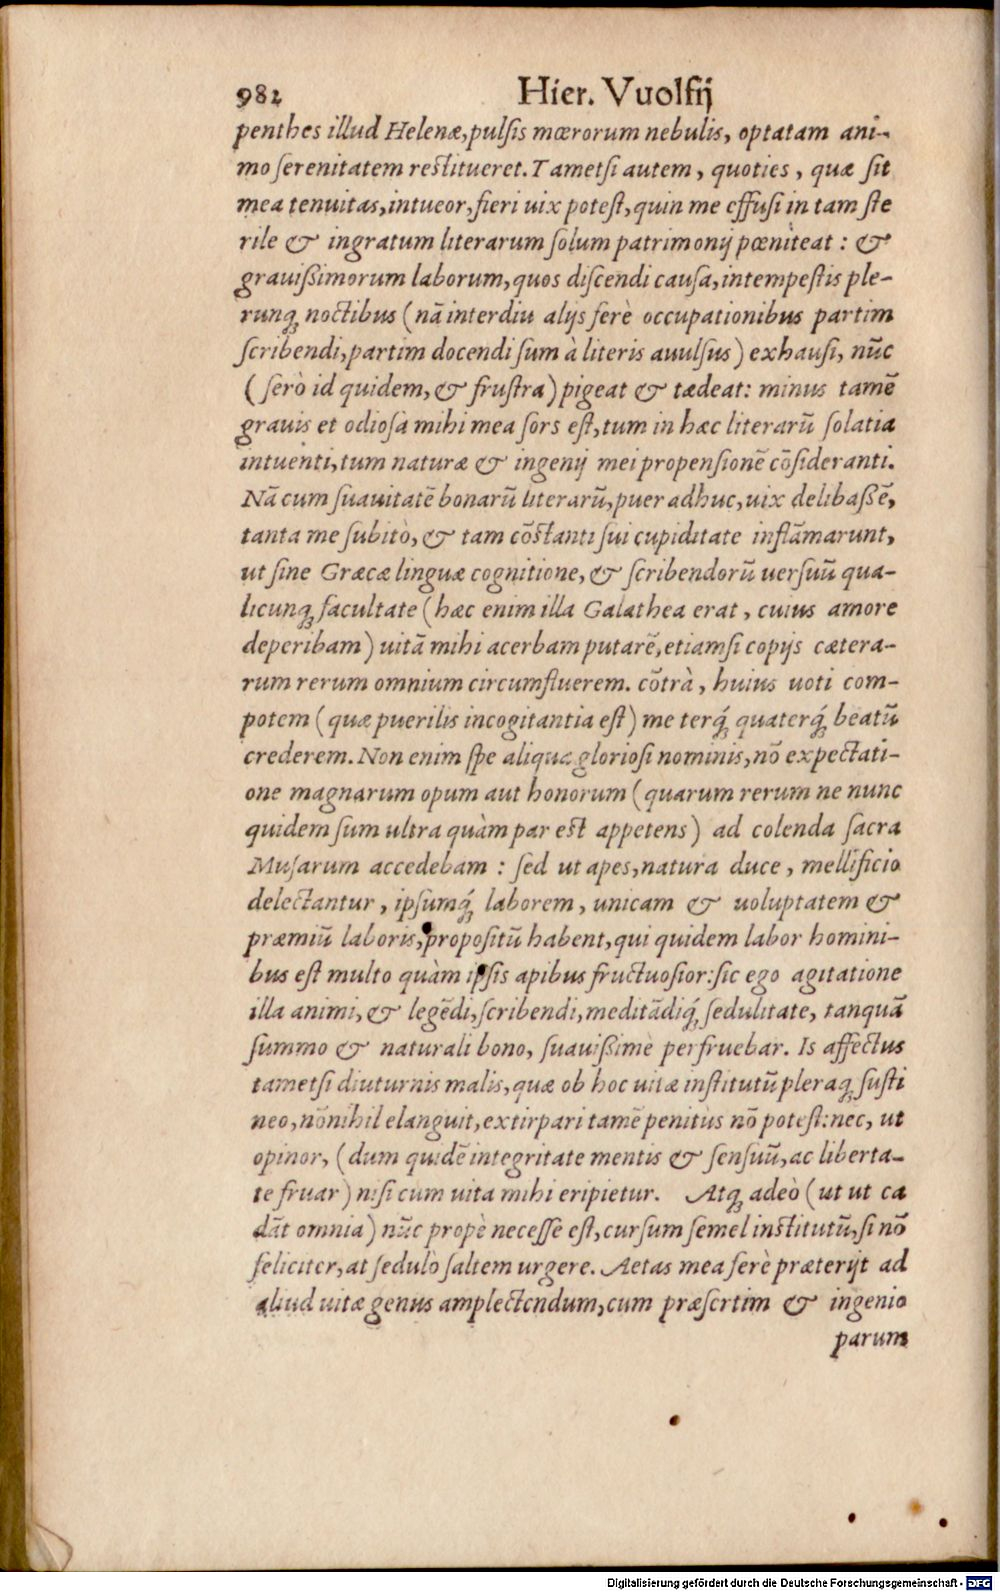 982 Hier. Vuolfij
penthes illud Helenæ, pulſis mœrorum nebulis, optatam ani-
mo ſerenitatem reſtitueret. Tametſi autem, quoties, quæ ſit
mea tenuitas, intueor, fieri uix poteſt, quin me effuſi in tam ſte
rile & ingratum literarum ſolum patrimonij pœniteat: &
grauiſſimorum laborum, quos diſcendi cauſa, intempeſtis ple-
runqꝫ noctibus (nã interdiu alijs ferè occupationibus partim
ſcribendi, partim docendi ſum à literis auulſus) exhauſi, nũc
(ſerò id quidem, & fruſtra) pigeat & tædeat: minus tamẽ
grauis et odioſa mihi mea ſors eſt, tum in hæc literarũ ſolatia
intuenti, tum naturæ & ingenij mei propenſionẽ cõſideranti.
Nã cum ſuauitatẽ bonarũ literarũ, puer adhuc, uix delibaſſẽ,
tanta me ſubitò, & tam cõſtanti ſui cupiditate inflãmarunt,
ut ſine Græcæ linguæ cognitione, & ſcribendorũ uerſuũ qua-
licunqꝫ facultate (hæc enim illa Galathea erat, cuius amore
deperibam) uitã mihi acerbam putarẽ, etiamſi copijs cætera-
rum rerum omnium circumfluerem. cõtrà, huius uoti com-
potem (quæ puerilis incogitantia eſt) me terqꝫ́ quaterqꝫ́ beatũ
crederem. Non enim ſpe aliqua glorioſi nominis, nõ expectati-
one magnarum opum aut honorum (quarum rerum ne nunc
quidem ſum ultra quàm par eſt appetens) ad colenda ſacra
Muſarum accedebam: ſed ut apes, natura duce, mellificio
delectantur, ipſumqꝫ́ laborem, unicam & uoluptatem &
præmiũ laboris, propoſitũ habent, qui quidem labor homini-
bus eſt multo quàm ipſis apibus fructuoſior: ſic ego agitatione
illa animi, & legẽdi, ſcribendi, meditãdiqꝫ́ ſedulitate, tanquã
ſummo & naturali bono, ſuauiſſimè perfruebar. Is affectus
tametſi diuturnis malis, quæ ob hoc uitæ inſtitutũ pleraqꝫ ſuſti
neo, nõnihil elanguit, extirpari tamẽ penitùs nõ poteſt: nec, ut
opinor, (dum quidẽ integritate mentis & ſenſuũ, ac liberta-
te fruar) niſi cum uita mihi eripietur. Atqꝫ adeò (ut ut ca
dãt omnia) nũc propè neceſſe eſt, curſum ſemel inſtitutũ, ſi nõ
feliciter, at ſedulò ſaltem urgere. Aetas mea ferè præterijt ad
aliud uitæ genus amplectendum, cum præſertim & ingenio
parum
Digitalisierung gefördert durch die Deutsche Forschungsgemeinschaft - DFG